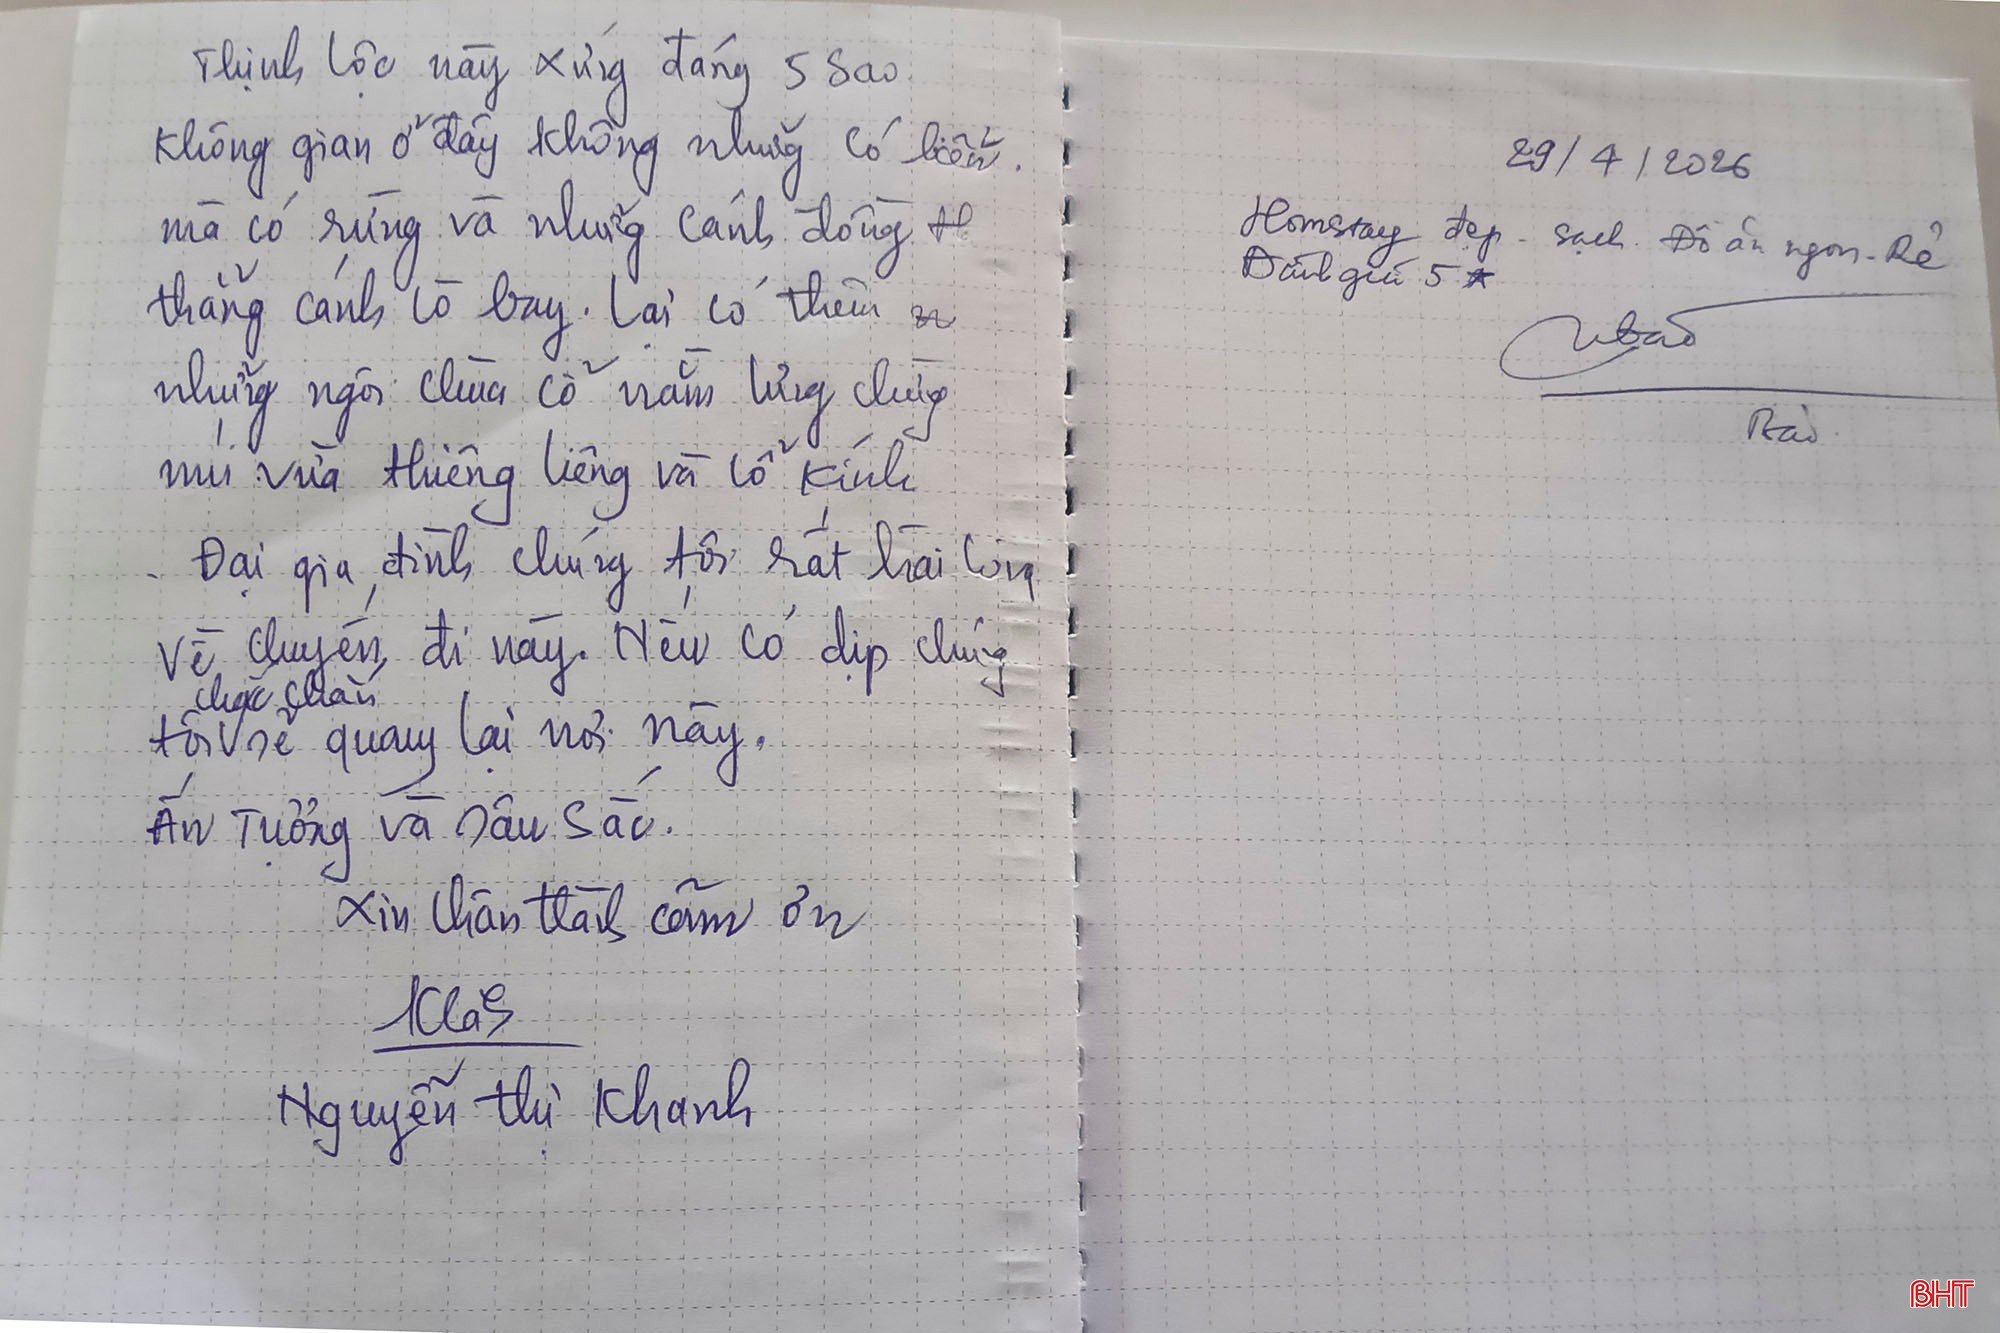 Thịnh Lộc này xứng đáng 5 sao.
Không gian ở đây không những có biển.
mà có rừng và những cánh đồng
thẳng cánh cò bay. Lại có thêm
những ngôi chùa cổ nằm lưng chừng
núi vừa thiêng liêng và cổ kính
Đại gia đình chúng tôi rất hài lòng
về chuyến đi này. Nếu có dịp chúng
chắc chắn
tôi sẽ quay lại nơi này.
Ấn Tượng và sâu sắc.
Xin chân thành cảm ơn
Nguyễn Thị Khanh
29/4/2026
Homstay đẹp - sạch. Đồ ăn ngon - Rẻ
Đánh giá 5 ★
BHT